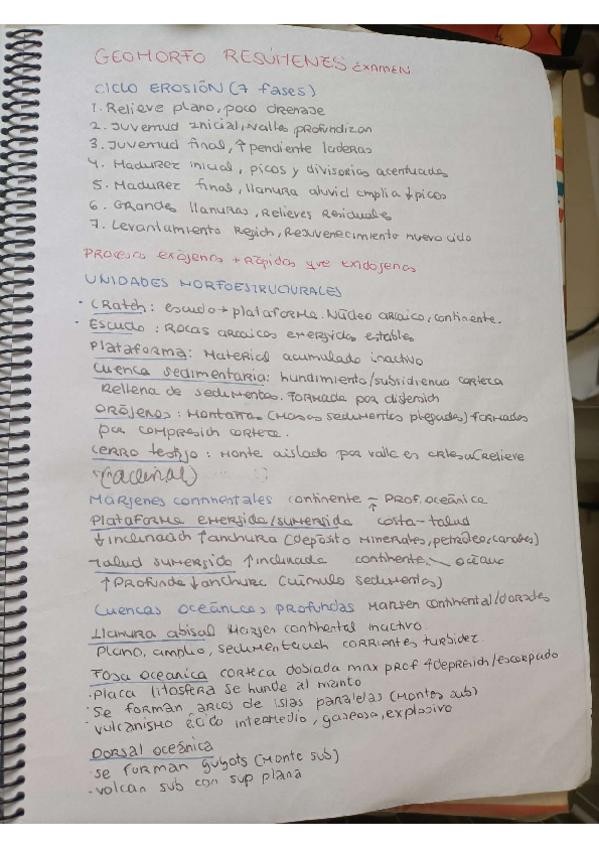 GEOMORFO RESÚMENES EXAMEN
CICLO EROSIÓN (7 fases)
1. Relieve plano, poco drenaje
2. Juventud inicial, valles profundizan
3. Juventud final, ↑ pendiente laderas
4. Madurez inicial, picos y divisorias acentuadas
5. Madurez final, llanura aluvial amplia ↓ picos
6. Grandes llanuras, Relieves Residuales
7. Levantamiento Región, Rejuvenecimiento nuevo ciclo
Procesos exógenos + Rápidos que endógenos
UNIDADES MORFOESTRUCTURALES
· Cratón: escudo + plataforma. Núcleo arcaico, continente.
· Escudo: Rocas arcaicas emergidas estables
Plataforma: Material acumulado inactivo
Cuenca sedimentaria: hundimiento/subsidiencia corteza
Rellena de sedimentos. Formada por distensión
Orójenos: Montaña (Masas sedimentos plegadas) formados
por compresión corteza.
Cerro testigo: Monte aislado por valle en relieve
Márjenes continentales continente - prof. oceánica
Plataforma emergida/sumergida costa-talud
↓ inclinación ↑ anchura (depósito minerales, petróleo, carbones)
Talud sumergido ↑ inclinada continente océano
↑ Profunda ↓ anchura (cúmulo sedimentos)
Cuencas oceánicas profundas Margen continental/dorsales
Llanura abisal Margen continental inactivo.
Plano, amplio, sedimentación corrientes turbidez
Fosa oceanica corteza doblada max prof ↑ depresión/escarpado
· Placa litosfera se hunde al manto
· Se forman arcos de islas paralelas (Montes sub)
· vulcanismo ácido intermedio, gaseoso, explosivo
Dorsal oceánica
· se forman guyots (Monte sub)
· volcan sub con sup plana